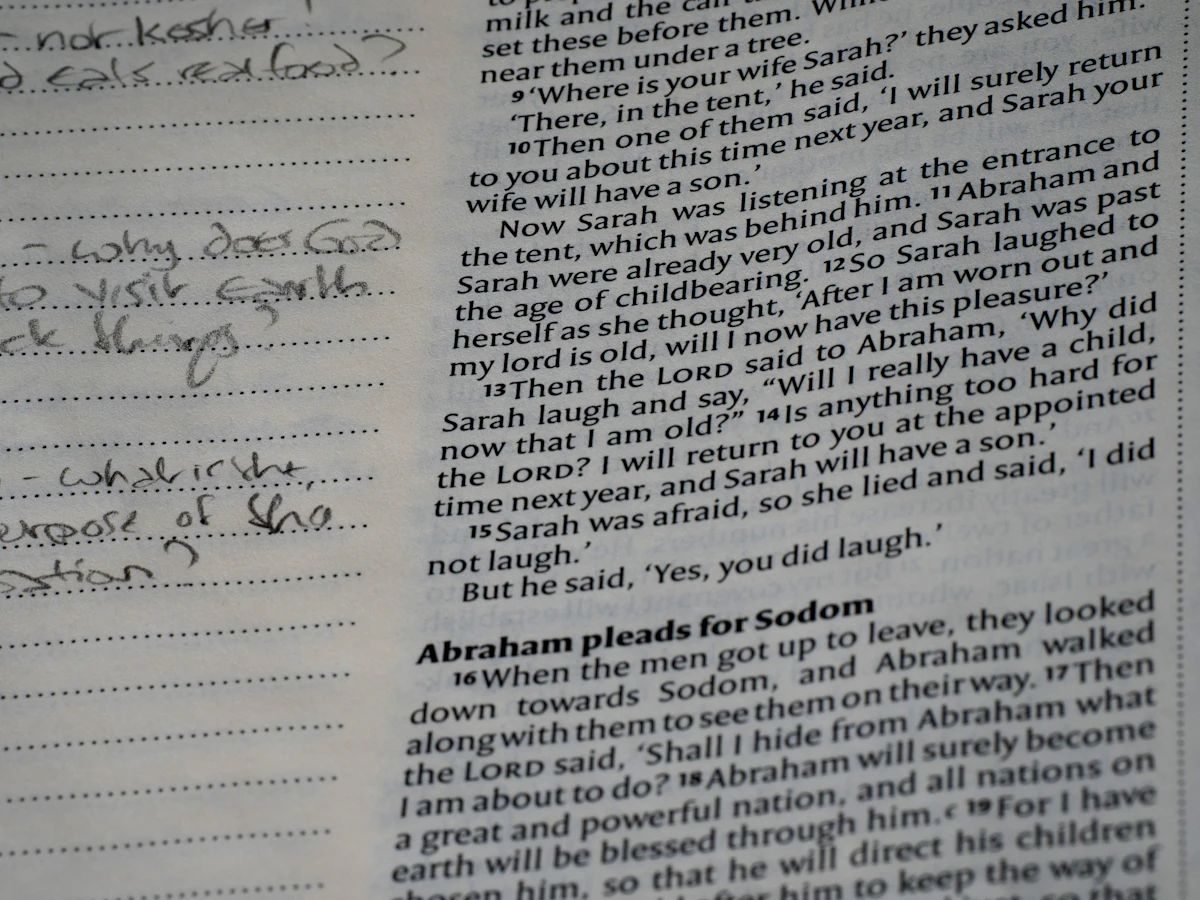 - not kosher
eats real food?
- why does God
to visit earth
ck things?
- what is the
urpose of the
ation?
milk and the calf
set these before them. Whi
near them under a tree.
9 ‘Where is your wife Sarah?’ they asked him.
‘There, in the tent,’ he said.
10 Then one of them said, ‘I will surely return
to you about this time next year, and Sarah your
wife will have a son.’
Now Sarah was listening at the entrance to
the tent, which was behind him. 11 Abraham and
Sarah were already very old, and Sarah was past
the age of childbearing. 12 So Sarah laughed to
herself as she thought, ‘After I am worn out and
my lord is old, will I now have this pleasure?’
13 Then the LORD said to Abraham, ‘Why did
Sarah laugh and say, “Will I really have a child,
now that I am old?” 14 Is anything too hard for
the LORD? I will return to you at the appointed
time next year, and Sarah will have a son.’
15 Sarah was afraid, so she lied and said, ‘I did
not laugh.’
But he said, ‘Yes, you did laugh.’
Abraham pleads for Sodom
16 When the men got up to leave, they looked
down towards Sodom, and Abraham walked
along with them to see them on their way. 17 Then
the LORD said, ‘Shall I hide from Abraham what
I am about to do? 18 Abraham will surely become
a great and powerful nation, and all nations on
earth will be blessed through him. c 19 For I have
chosen him, so that he will direct his children
after him to keep the way of
so that